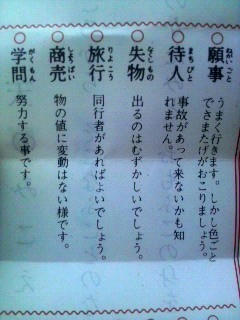 願事 ねがいごと
うまく行きます。しかし色ごと
でさまたげがおこりましょう。
待人 まちびと
事故があって来ないかも知
れません。
失物 なくしもの
出るのはむずかしいでしょう。
旅行 りょこう
同行者があればよいでしょう。
商売 しょうばい
物の値に変動はない様です。
学問 がくもん
努力する事です。